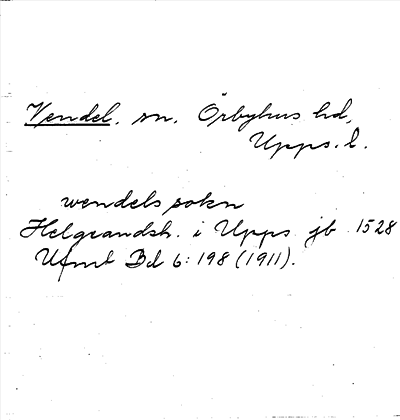 Vendel, sn. Örbyhus hd,
Upps. l.
wendels sokn
Helgeandsh. i Upps jb 1528
Ufmt Bd 6: 198 (1911).